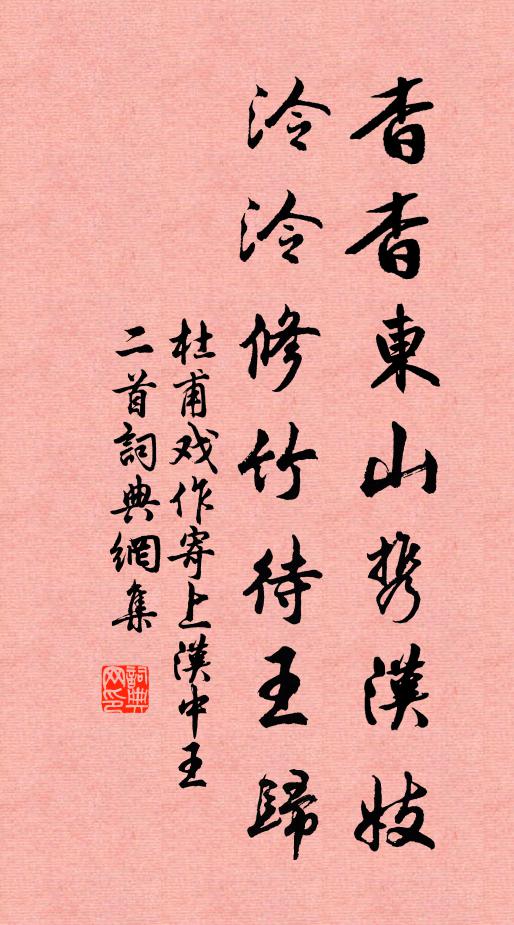 杳杳東山携漢妓
泠泠修竹待王歸
杜甫戏作寄上漢中王
二首詞典網集
詞典
网印